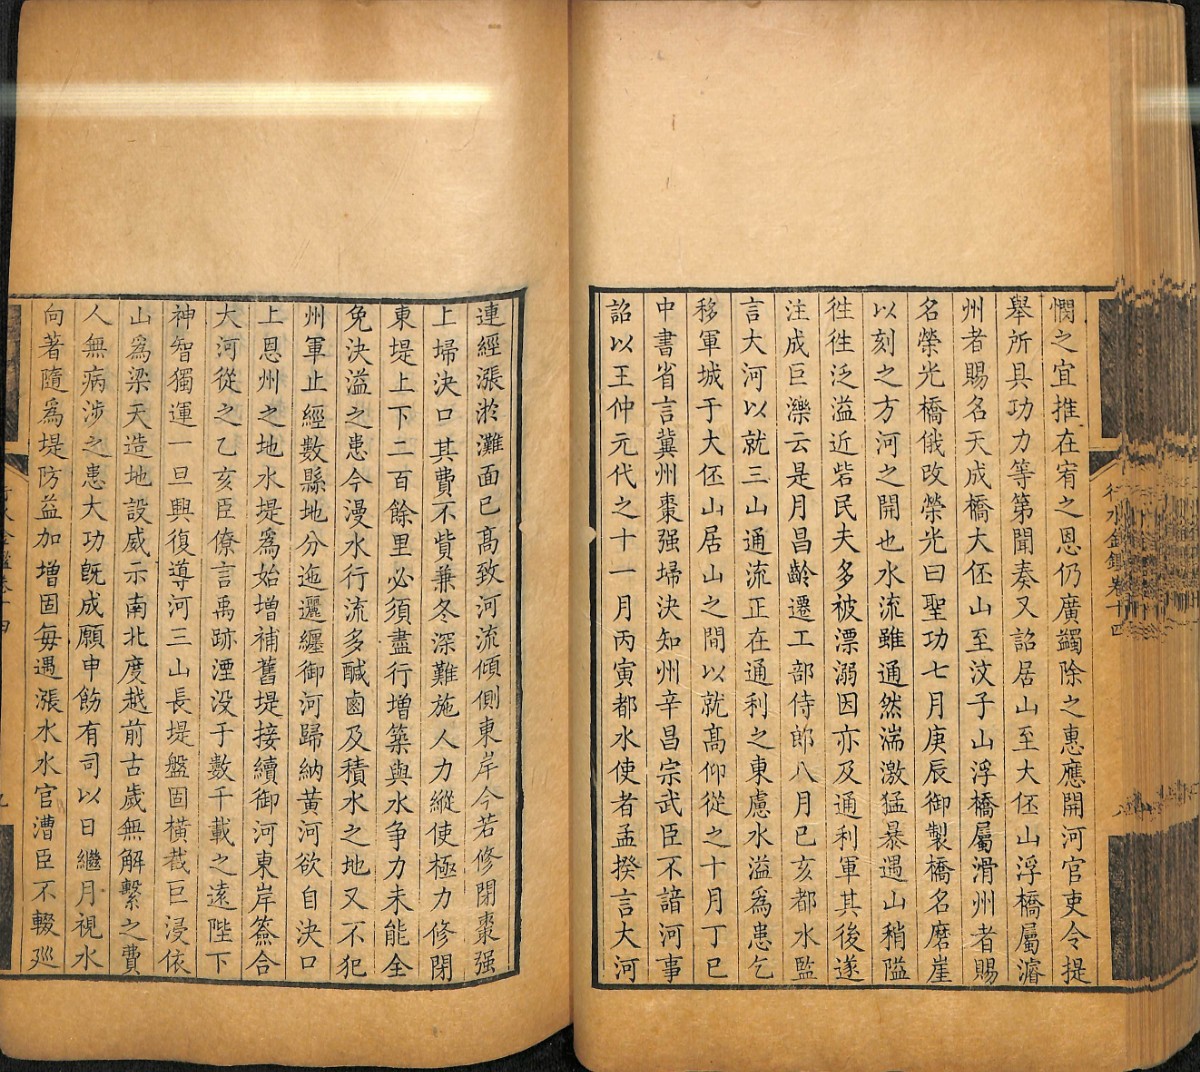 憫之宜推在宥之恩仍廣蠲除之惠應開河官吏令提
舉所具功力等第聞奏又詔居山至大伾山浮橋屬濬
州者賜名天成橋大伾山至汶子山浮橋屬滑州者賜
名榮光橋俄改榮光曰聖功七月庚辰御製橋名磨崖
以刻之方河之開也水流雖通然湍激猛暴遇山稍隘
徃徃泛溢近砦民夫多被漂溺因亦及通利軍其後遂
注成巨濼云是月昌齡遷工部侍郎八月已亥都水監
言大河以就三山通流正在通利之東慮水溢爲患乞
移軍城于大伾山居山之間以就髙仰從之十月丁巳
中書省言冀州棗强埽決知州辛昌宗武臣不諳河事
詔以王仲元代之十一月丙寅都水使者孟揆言大河
行水金鑑卷十四
連經漲淤灘面已髙致河流傾側東岸今若修閉棗强
上埽決口其費不貲兼冬深難施人力縱使極力修閉
東堤上下二百餘里必須盡行增築與水争力未能全
免決溢之患今漫水行流多鹹鹵及積水之地又不犯
州軍止經數縣地分迤邐纏御河歸納黄河欲自決口
上恩州之地水堤爲始增補舊堤接續御河東岸簽合
大河從之乙亥臣僚言禹跡湮没于數千載之遠陛下
神智獨運一旦興復導河三山長堤盤固横截巨浸依
山爲梁天造地設威示南北度越前古歲無解繫之費
人無病涉之患大功旣成願申飭有司以日繼月視水
向著隨爲堤防益加增固每遇漲水水官漕臣不輟廵